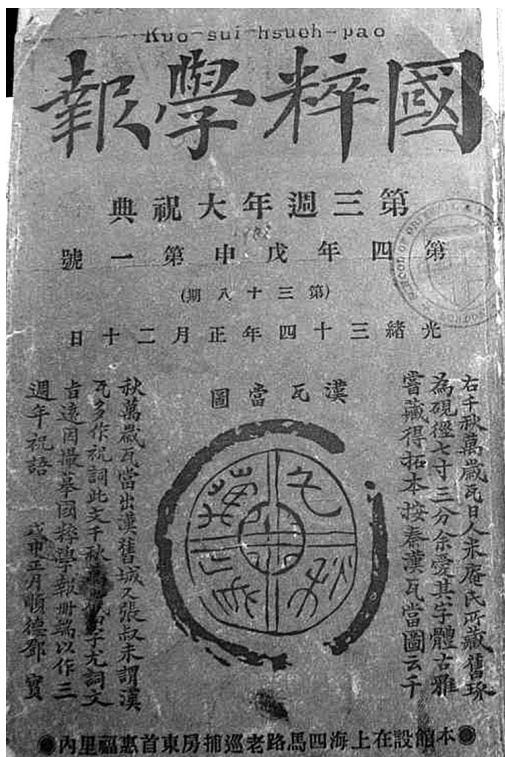 Kuo-sui-hsueh-pao
國粹學報
第三週年大祝典
第四年戊申第一號
(第三十八期)
光緒三十四年正月二十日
漢瓦當圖
右千秋萬歲瓦日人未庵氏所藏舊琢
為硯徑七寸三分余愛其字體古雅
嘗藏得拓本按秦漢瓦當圖云千
秋萬歲瓦當出漢舊城又張叔未謂漢
瓦多作祝詞此文千秋萬歲四字尤詞文
吉遠因撮摹國粹學報冊端以作三
週年祝語 戊申正月順德鄧實
千秋萬歲
●本館設在上海四馬路老巡捕房東首惠福里內●